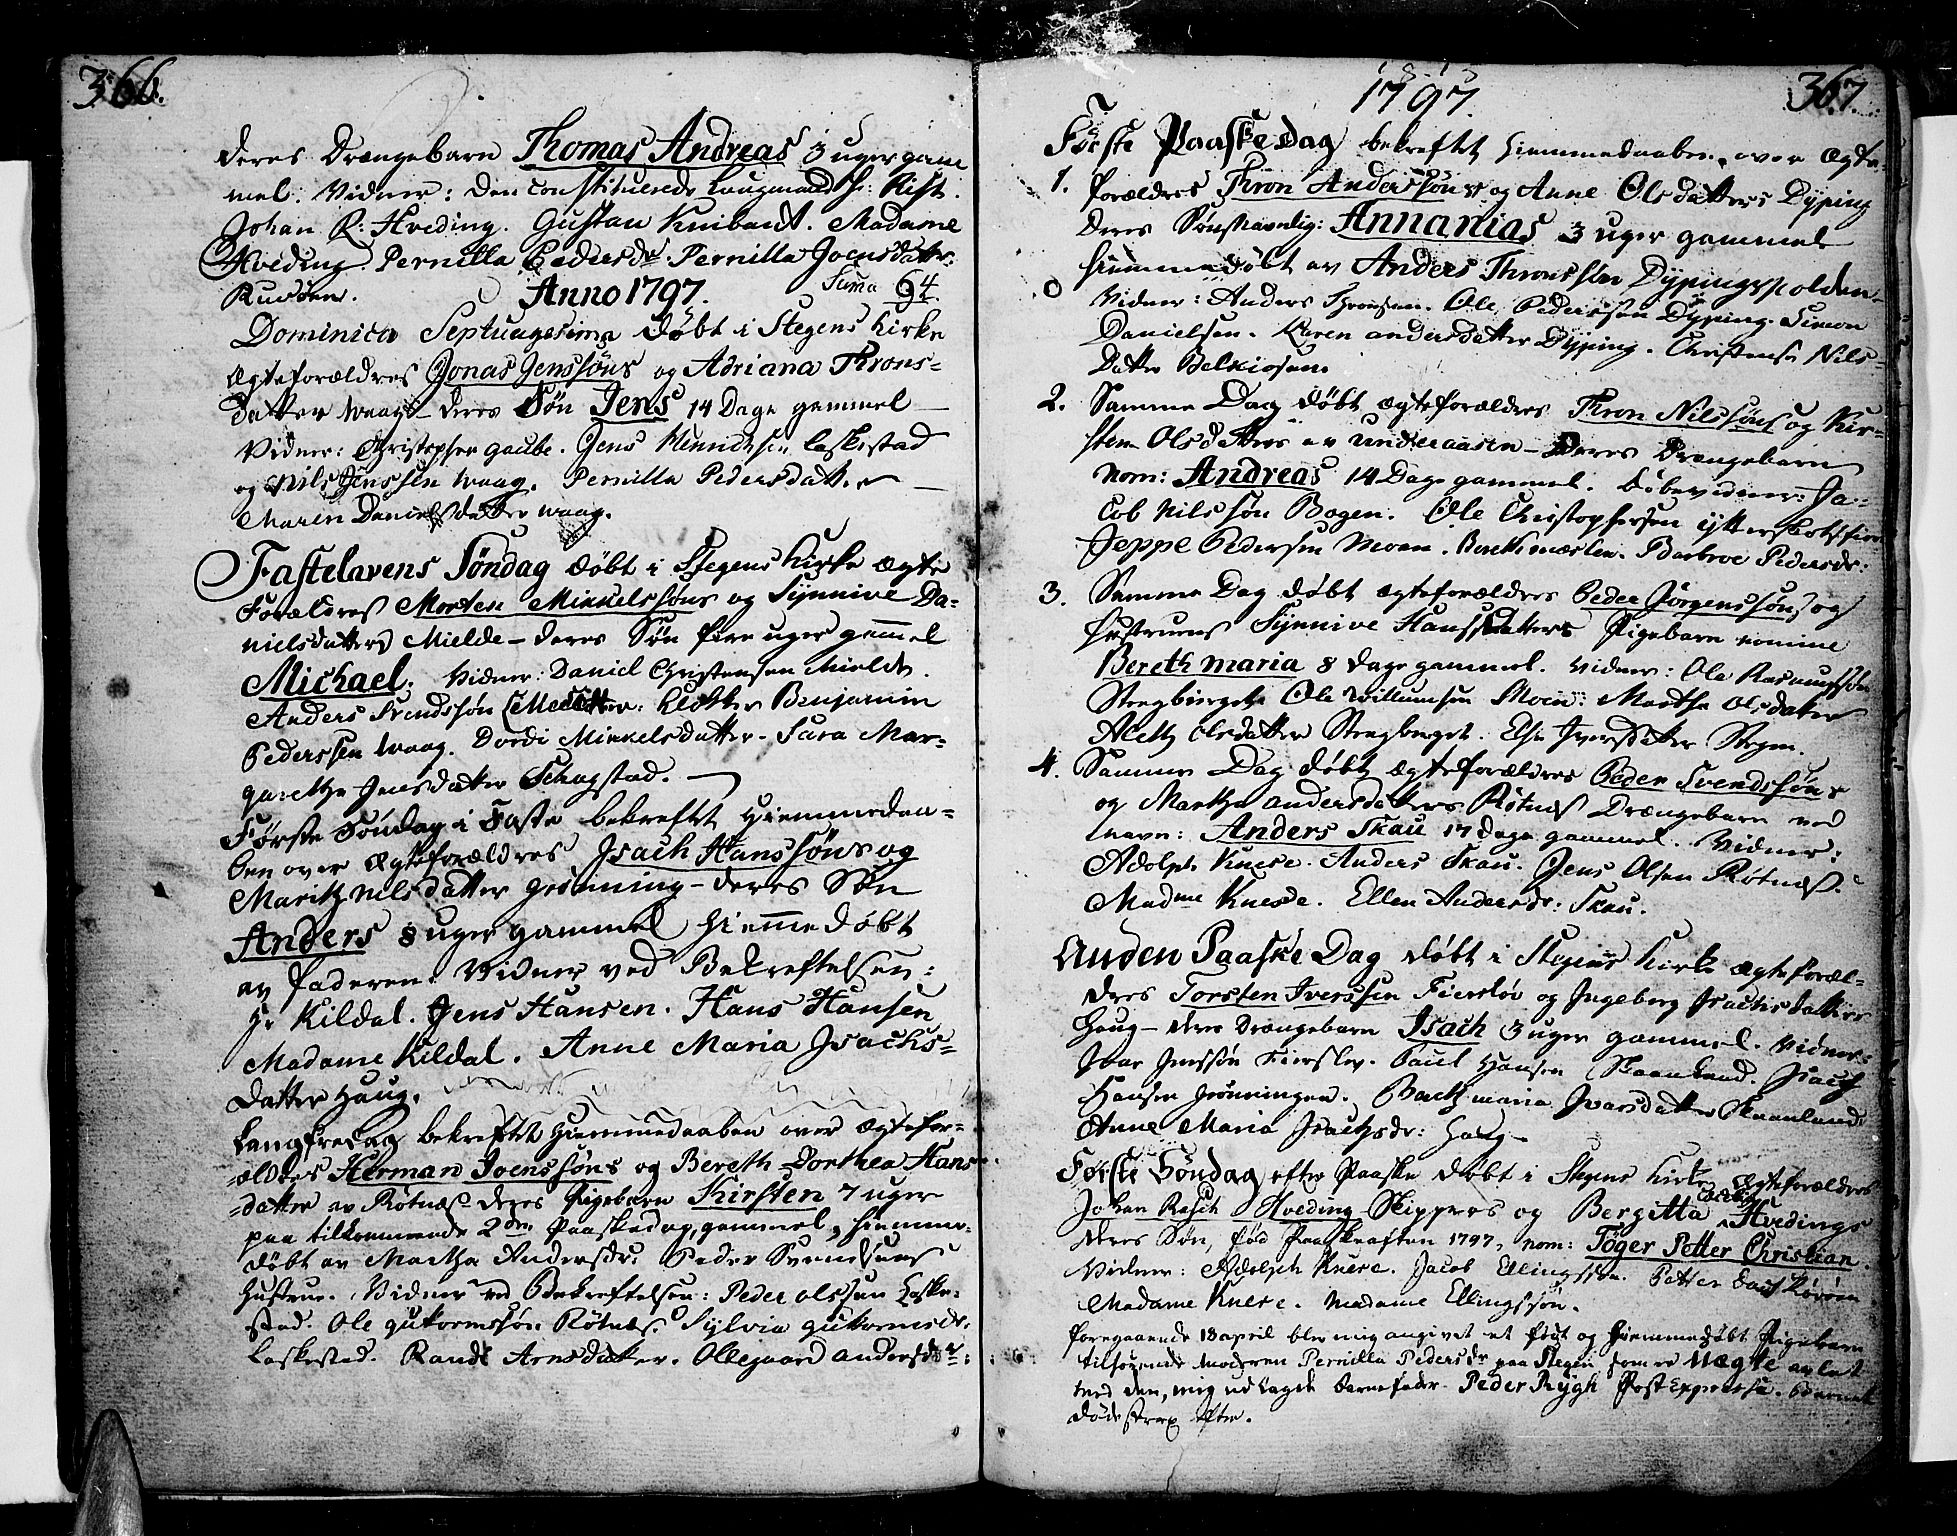 366.
deres Drængebarn Thomas Andreas 3 uger gam
mel. Vidner: Den constituerede Laugmand Hr: Rist.
Johan R: Hveding. Gustav Knibardt. Madame
Hveding. Pernilla Pedersdr. Pernilla Joensdatter
Anno 1797. Suma 64.
Dominica Septuagesima døbt i Stegens Kirke
Ægteforældres Jonas Jenssøns og Adriana Throns-
datter Waag - deres Søn Jens 14 Dage gammel
Vidner: Christopher Gaube. Jens Leskestad
og Nils Jenssen Waag. Pernilla Pedersdatter
Maren Danielsdatter Waag.
Fastelavens Søndag døbt i Stegens Kirke Ægte
Forældres Morten Mikkelssøns og Synnive Da-
nielsdatters Mielde - deres Søn fire uger gammel
Michael. Vidner: Daniel Christensen Mielde.
Anders Svendssøn Klokker Benjamin
Pederssen Waag. Dordi Mikkelsdatter. Sara Mar-
garetha Jensdatter Schagstad.
Første Søndag i Faste bekreftet Hiemmedaa-
ben over Ægteforældres Isach Hanssøns og
Marith Nilsdatter Grønning - deres Søn
Anders 8 uger gammel hiemmedøbt
av faderen. Vidner ved Bekreftelsen:
Hr Kildal. Jens Hansen. Hans Hansen
Madame Kildal. Anne Maria Isachs-
datter Haug.
Langfredag bekreftet Hiemmedaaben over Ægtefor-
ældres Herman Joenssøns og Bereth Dorthea Hans
datter av Røtnæs deres Pigebarn Kirsten 7 uger
paa tilkommende 2den Paaskedag gammel, hiemme-
døbt av Martha Andersdr. Peder Svendsens
Hustrue. Vidner ved Bekreftelsen: Peder Olssen Leske-
stad. Ole Gutormssøn Røtnes. Sylvia Gutormsdr.
Leskestad. Randi Arnsdatter. Ollegaard Andersdr:
1797. 367.
Første Paaske Dag bekreftet Hiemmedaaben over Ægte-
1. forældres Thron Anderssøns og Anne Olsdatters Dyping
Deres Søn navnlig: Annanias 3 uger gammel
hiemmedøbt av Anders Thronssøn Dypingspolden
Vidner: Anders Thronsen. Ole Pederssen Dyping. Simon
Danielsen. Karen Andersdatter Dyping. Christense Nils-
datter
2. Samme Dag døbt Ægteforældres Thron Nilssøns og Kir-
sten Olsdatters av Underaasen - Deres Drængebarn
nom: Andreas 14 Dage gammel. Døbevidner: Ja-
cob Nilssøn Bogen. Ole Christophersen
Jeppe Pedersen Moen. Barbroe Pedersdr:
3. Samme Dag døbt Ægteforældres Peder Jørgenssøns og
Hustrues Synnive Hansdatters Pigebarn nomine
Bereth Maria 8 Dage gammel. Vidner: Ole Rasmussøn
Stregbierget. Ole Willumsen Moen: Martha Olsdatter
Aleth Olsdatter Stregberget. Else Iversdatter Stegen.
4. Samme Dag døbt Ægteforældres Peder Svendssøns
og Martha Andersdatters Røtnæs Drængebarn ved
navn: Anders Skau 17 Dage gammel. Vidner:
Adolph Knese. Anders Skau. Jens Olsen Røtnæs.
Madme Knese. Ellen Andersdr: Skau.
Anden Paaske Dag døbt i Stegens Kirke Ægteforæl-
dres Torsten Iverssen Fierslev og Ingeborg Isachsdatters
Haug - deres Drængebarn Isach 3 uger gammel. Vidner:
Ivar Jenssøn Fierslev. Paul Hansen Skaanland. Isach
Hansen Grønningen. Maria Ivarsdatter Skaanland
Anne Maria Isachsdr: Haug -
Første Søndag efter Paaske døbt i Stegens Kirke Ægteforældres
Johan Rasch Hveding Skippers og Bergitta Hvedings
deres Søn, fød Paaskeaften 1797, nom: Tøger Petter Christian.
Vidner: Adolph Knese. Jacob Ellingssøn. Petter
Madame Knese. Madame Ellingssøn.
foregaaende 18 april blev mig angivet et født og hiemmedøbt Pigebarn
tilhørende Moderen Pernilla Pedersdr paa Stegen som er uægte avlet
med den, mig udlagde barnefader Peder Rygh Post Expeditør. Barnet
døde strax efter.